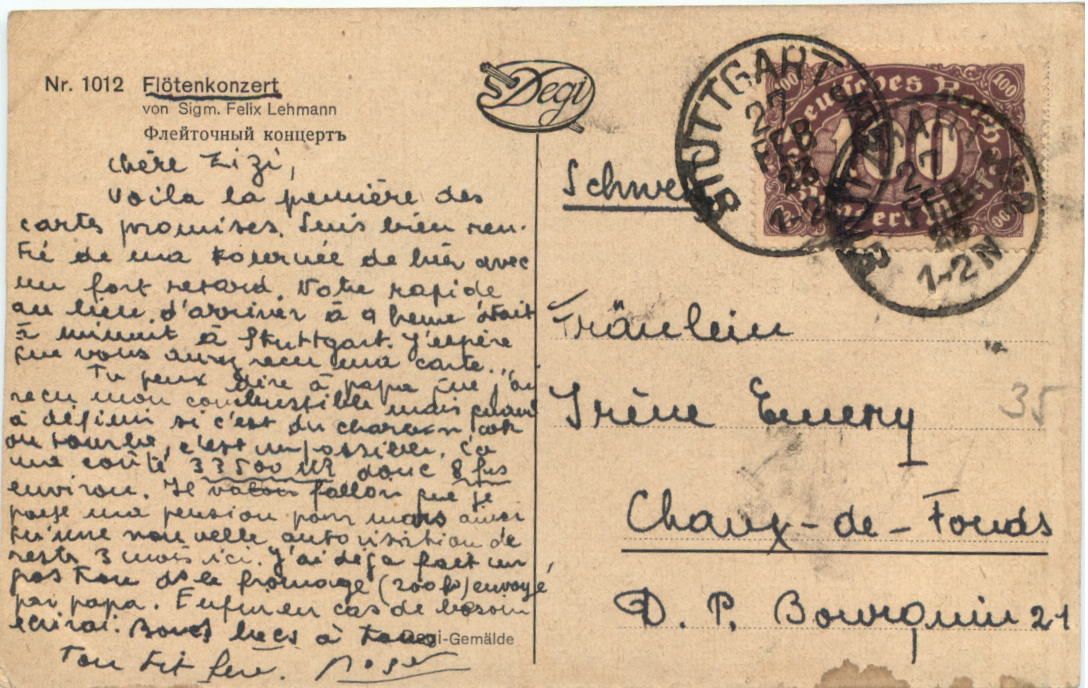 Nr. 1012 Flötenkonzert
von Sigm. Felix Lehmann
Флейточный концертъ
Degi
chère Zizi,
Voila la première des
cartes promises. Suis bien ren-
tré de ma tournée de hier avec
un fort retard. Votre rapide
au lieu d'arriver à 9 heure était
à minuit à Stuttgart. J'espère
que vous avez recu ma carte...
Tu peux dire à papa que j'ai
recu mon combustible mais quant
à définir si c'est du charbon, cok
ou tourbe, c'est impossible. Ca
me coûté 33500 M donc 8 frs
environ. Il fallon que je
paye ma pension pour mars ainsi
qu'une nouvelle autorisation de
reste 3 mois ici. J'ai déja fait un
gros trou ds le fromage (200 gr) envoyé
pai papa. Enfin en cas de besoin
écrirai. Bons becs à tous
Ton tit frère. Roger
Degi-Gemälde
Deutsches Reich
100
STUTTGART
27
FEB
23
1-2N
STUTTGART
27
FEB
23
1-2N
Schwe
Fräulein
Irène Emery
Chaux-de-Fonds
D. P. Bourquin 21
35